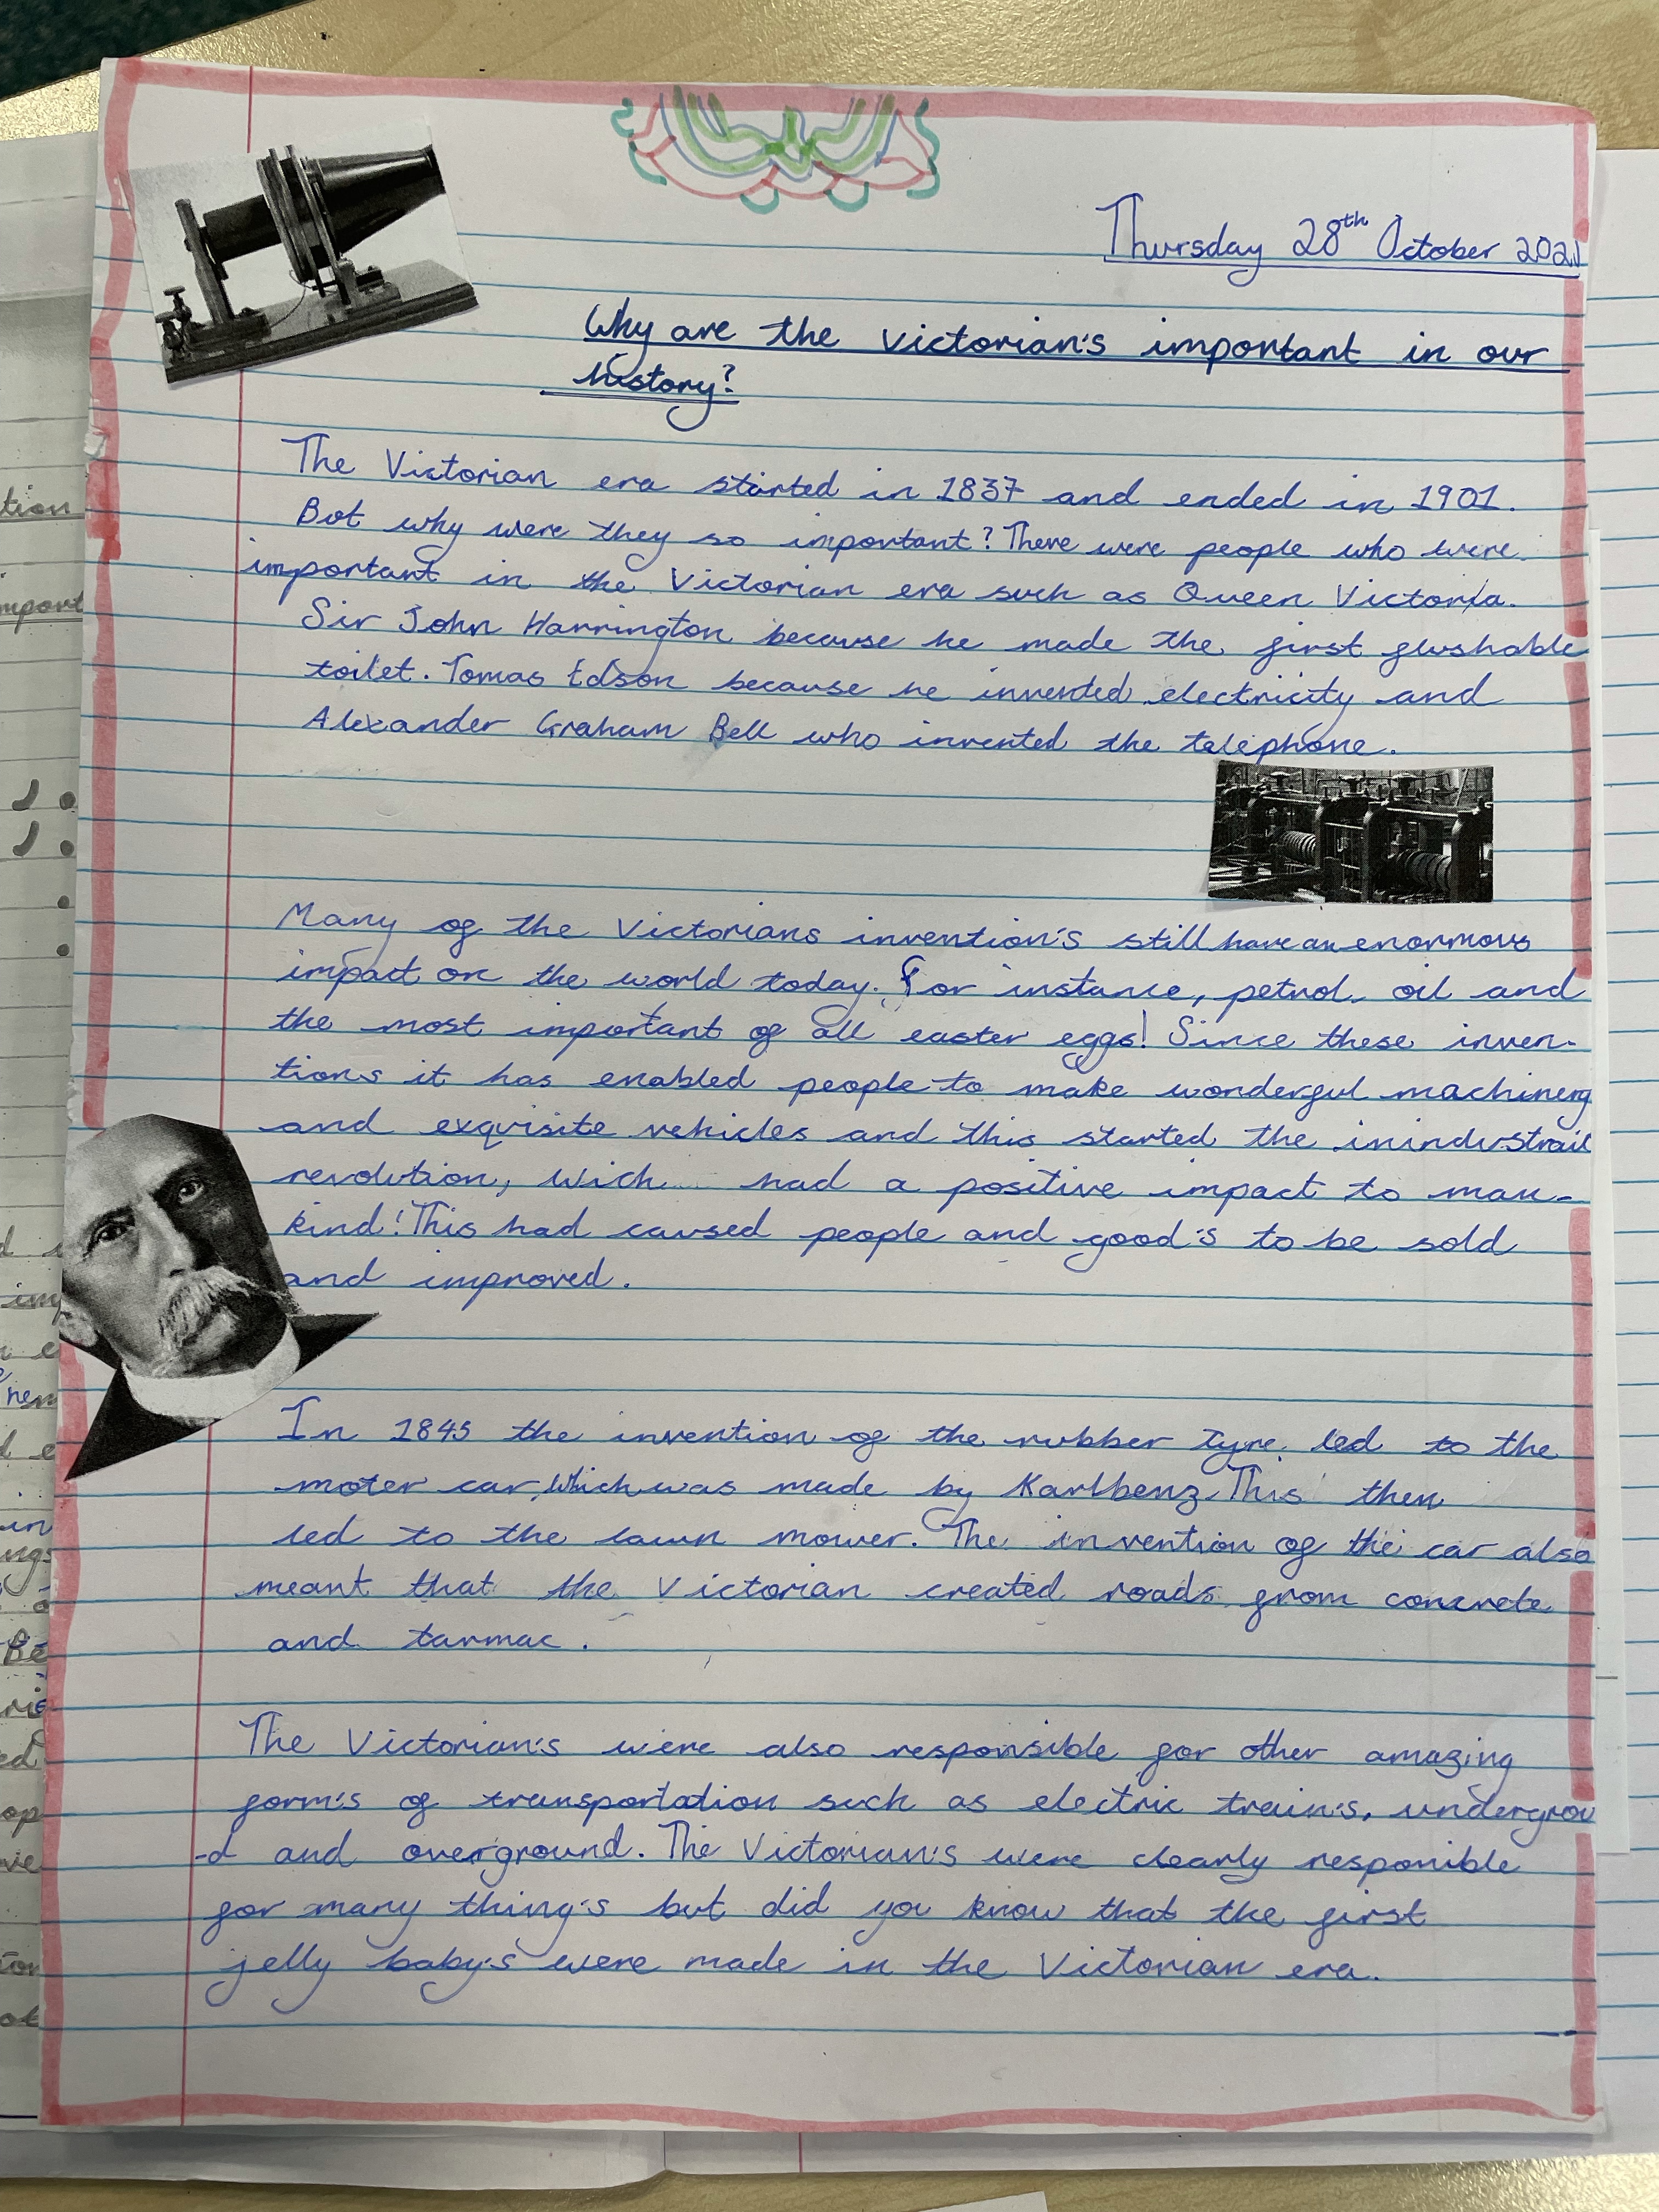 Thursday 28th October 2021
Why are the victorian's important in our
history?
The Victorian era started in 1837 and ended in 1901.
But why were they so important? There were people who were
important in the Victorian era such as Queen Victoria.
Sir John Harrington because he made the first flushable
toilet. Tomas Edson because he invented electricity and
Alexander Graham Bell who invented the telephone.
Many of the Victorians invention's still have an enormous
impact on the world today. For instance, petrol, oil and
the most important of all easter eggs! Since these inven-
tions it has enabled people to make wonderful machinery
and exquisite vehicles and this started the inindustrail
revolution, wich had a positive impact to man-
kind! This had caused people and good's to be sold
and improved.
In 1845 the invention of the rubber tyre led to the
moter car, which was made by Karlbenz. This then
led to the lawn mower. The invention of the car also
meant that the Victorian created roads from concrete
and tarmac.
The Victorian's were also responsible for other amazing
form's of transportation such as electric train's, undergrou
-d and overground. The Victorian's were clearly responible
for many thing's but did you know that the first
jelly baby's were made in the Victorian era.